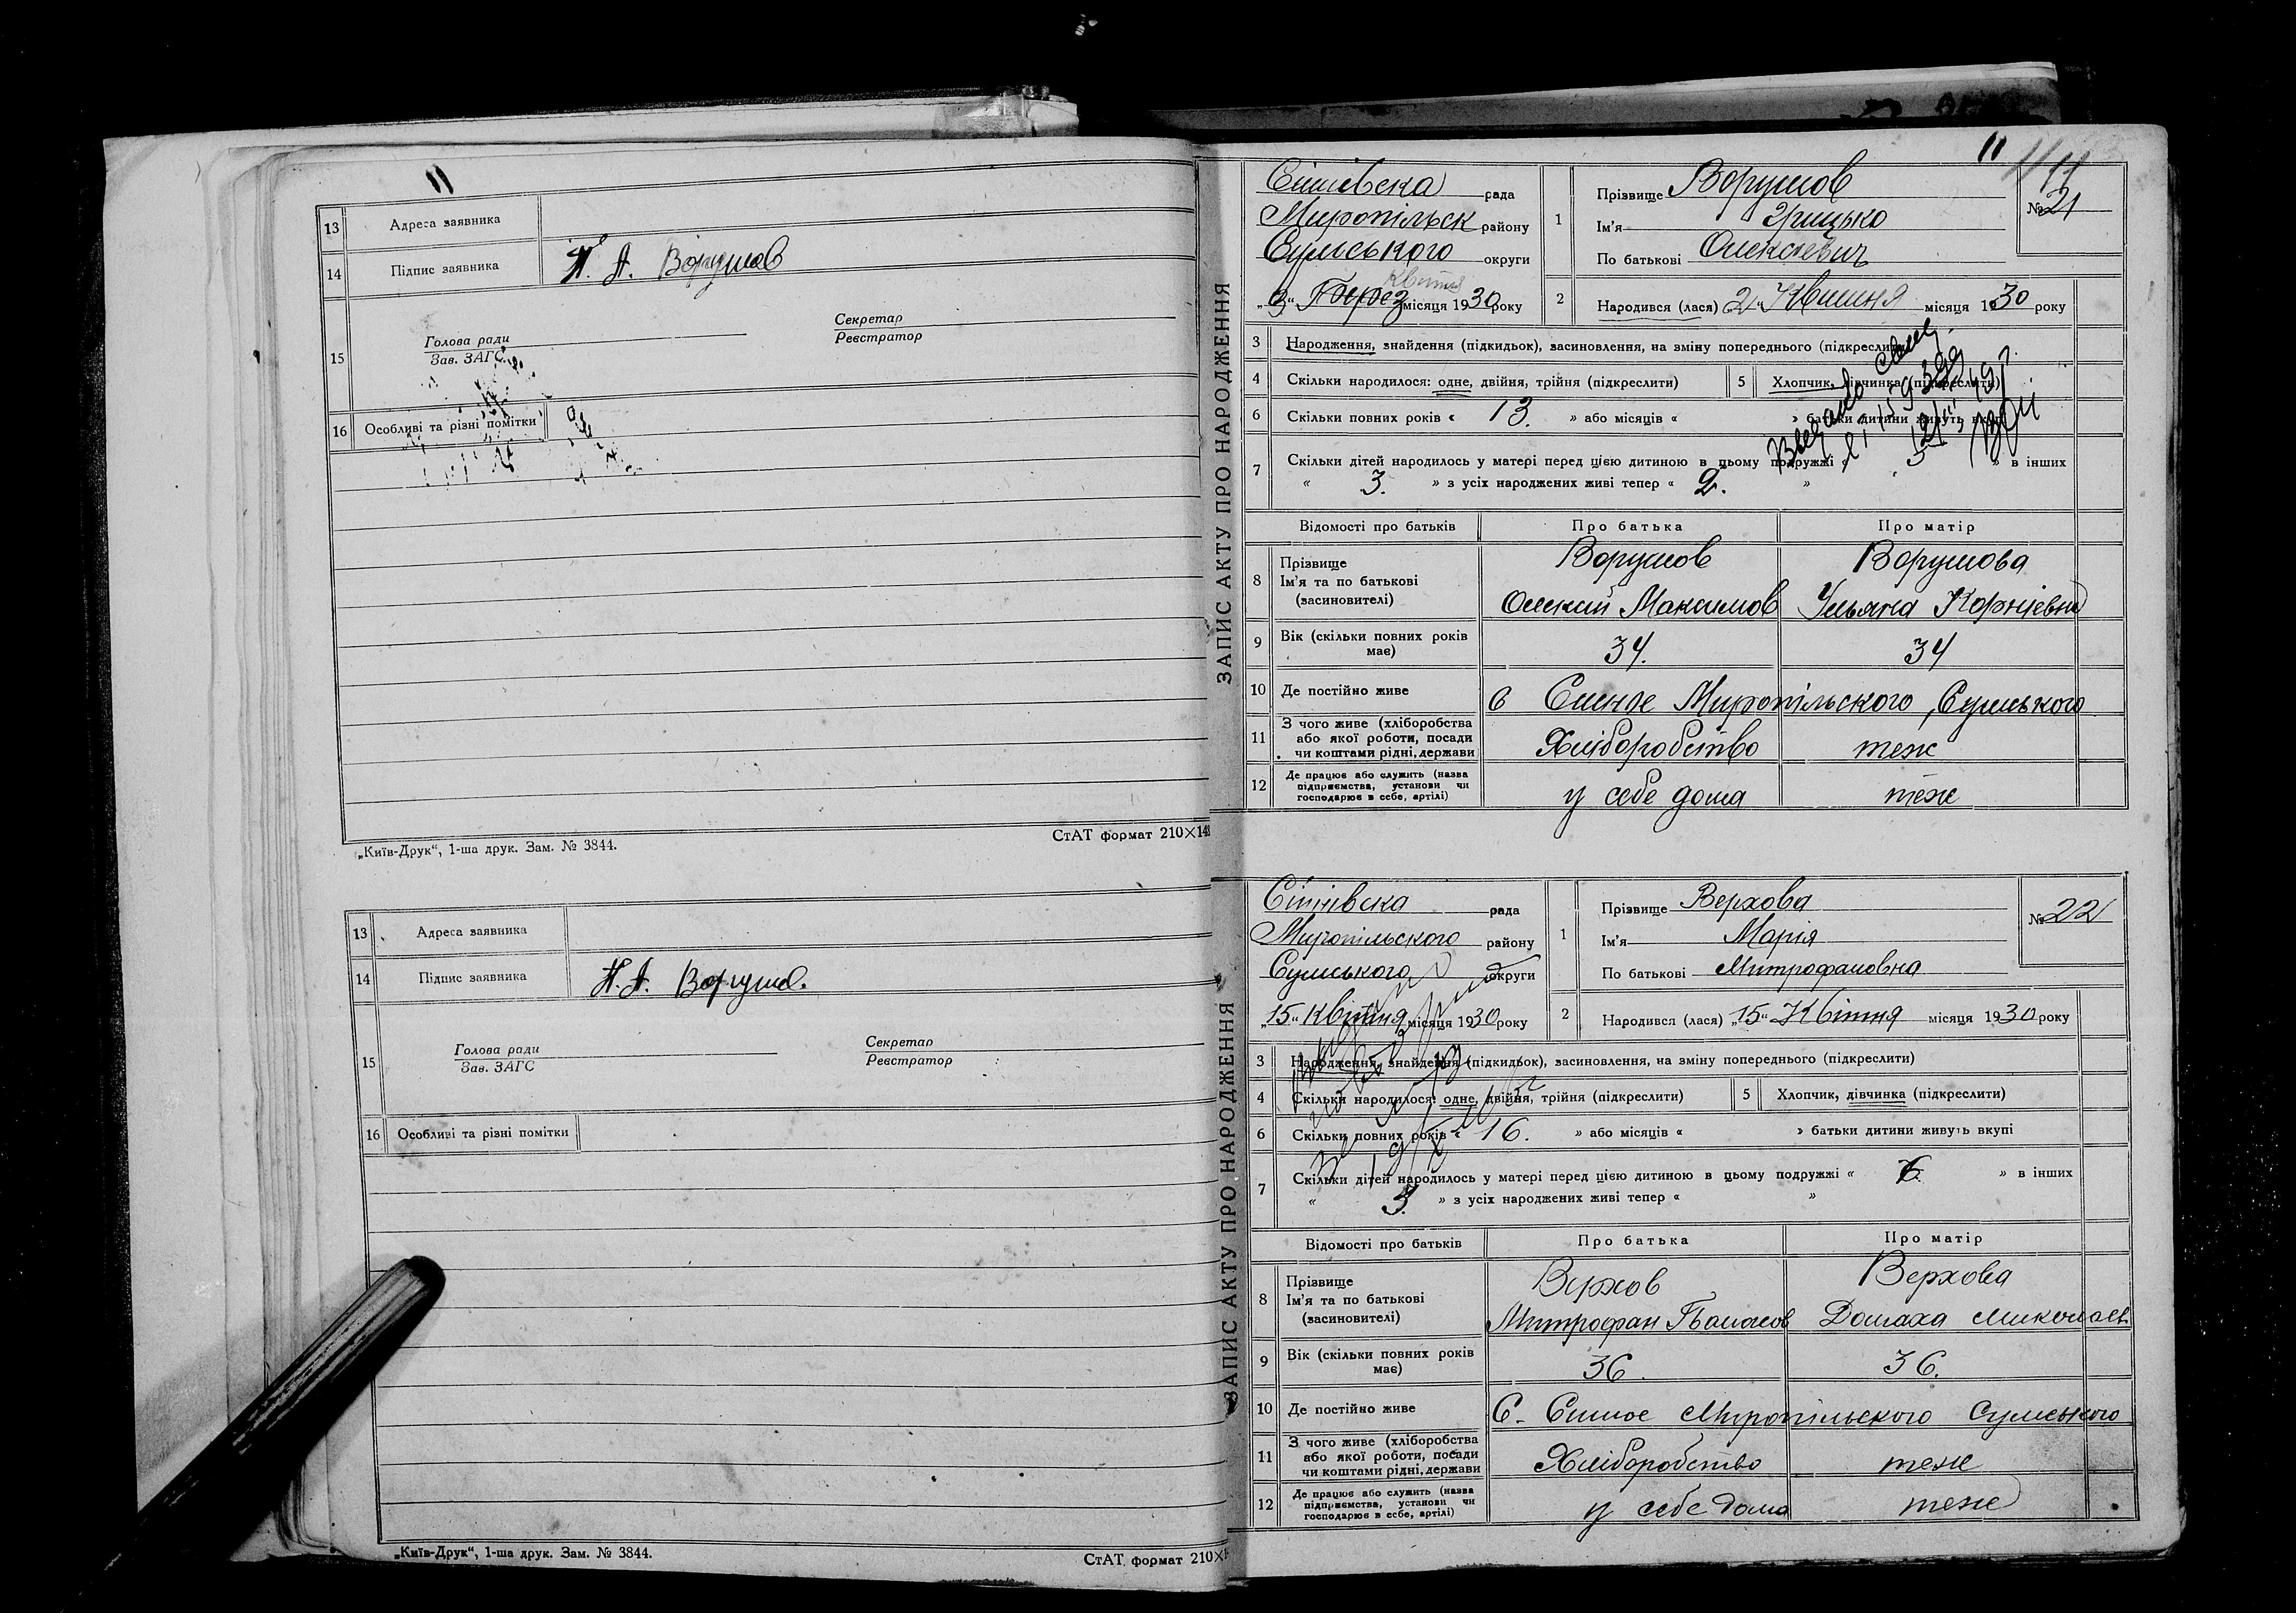 11
13 Адреса заявника
14 Підпис заявника А. Ворушов
15 Голова ради
Зав. ЗАГС
Секретар
Реєстратор
16 Особливі та різні помітки
„Київ-Друк“, 1-ша друк. Зам. № 3844.
СтАТ формат 210×14
13 Адреса заявника
14 Підпис заявника
15 Голова ради
Зав. ЗАГС
Секретар
Реєстратор
16 Особливі та різні помітки
„Київ-Друк“, 1-ша друк. Зам. № 3844.
СтАТ формат 210×1
11 11
ЗАПИС АКТУ ПРО НАРОДЖЕННЯ
рада
Миропільск району
Сумського округи
Квітня
„3“ місяця 1930 року
1 Прізвище Ворушов
Ім'я Грицько
По батькові Олексіевич
№ 21
2 Народився (лася) 2 Квітня місяця 1930 року
3 Народження, знайдення (підкидьок), засиновлення, на зміну попереднього (підкреслити)
4 Скільки народилося: одне, двійня, трійня (підкреслити)
5 Хлопчик, дівчинка (підкреслити)
6 Скільки повних років « 13. » або місяців « » батьки дитини живуть вкупі
7 Скільки дітей народилось у матері перед цією дитиною в цьому подружжі « 5 » в інших
« 3. » з усіх народжених живі тепер « 2. »
Відомості про батьків Про батька Про матір
8 Прізвище
Ім'я та по батькові
(засиновителі)
Ворушов Ворушова
Олексій Максимов Ульяна Корніевна
9 Вік (скільки повних років має) 34. 34
10 Де постійно живе в Миропільского Сумського
11 З чого живе (хліборобства
або якої роботи, посади
чи коштами рідні, держави
Хліборобство теж
12 Де працює або служить (назва
підприємства, установи чи
господарює в себе, артілі)
у себе дома теж
ЗАПИС АКТУ ПРО НАРОДЖЕННЯ
рада
Миропільского району
Сумського округи
„15“ Квітня місяця 1930 року
1 Прізвище Верхова
Ім'я Марія
По батькові Митрофановна
№ 22
2 Народився (лася) „15“ Квітня місяця 1930 року
3 Народження, знайдення (підкидьок), засиновлення, на зміну попереднього (підкреслити)
4 Скільки народилося: одне, двійня, трійня (підкреслити)
5 Хлопчик, дівчинка (підкреслити)
6 Скільки повних років « 16. » або місяців « » батьки дитини живуть вкупі
7 Скільки дітей народилось у матері перед цією дитиною в цьому подружжі « » в інших
« 3. » з усіх народжених живі тепер « »
Відомості про батьків Про батька Про матір
8 Прізвище
Ім'я та по батькові
(засиновителі)
Верхов Верхова
Митрофан Домаха Миколаев.
9 Вік (скільки повних років має) 36. 36.
10 Де постійно живе С. Миропільского Сумського
11 З чого живе (хліборобства
або якої роботи, посади
чи коштами рідні, держави
Хліборобство теж
12 Де працює або служить (назва
підприємства, установи чи
господарює в себе, артілі)
у себе дома теж